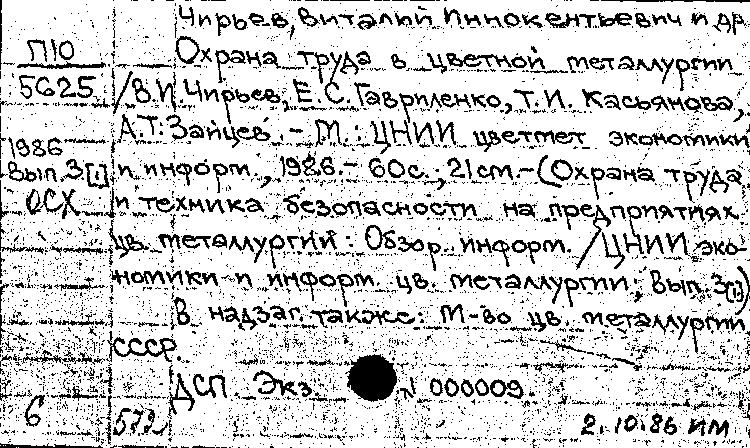 Чирьев, Виталий Иннокентьевич и др.
П10
5625
Охрана труда в цветной металлургии
/В.И. Чирьев, Е.С. Гавриленко, Т.И. Касьянова,
А.Т. Зайцев. - М.: ЦНИИ цветмет экономики
1986
Вып.3[.]
ОСХ
и информ., 1986. - 60с.; 21см. - (Охрана труда
и техника безопасности на предприятиях
цв. металлургии: Обзор. информ. / ЦНИИ эко-
номики и информ. цв. металлургии; Вып. 3[.])
В надзаг. также: М-во цв. металлургии
СССР.
ДСП Экз. N 000009.
6
572
2.10.86 ИМ